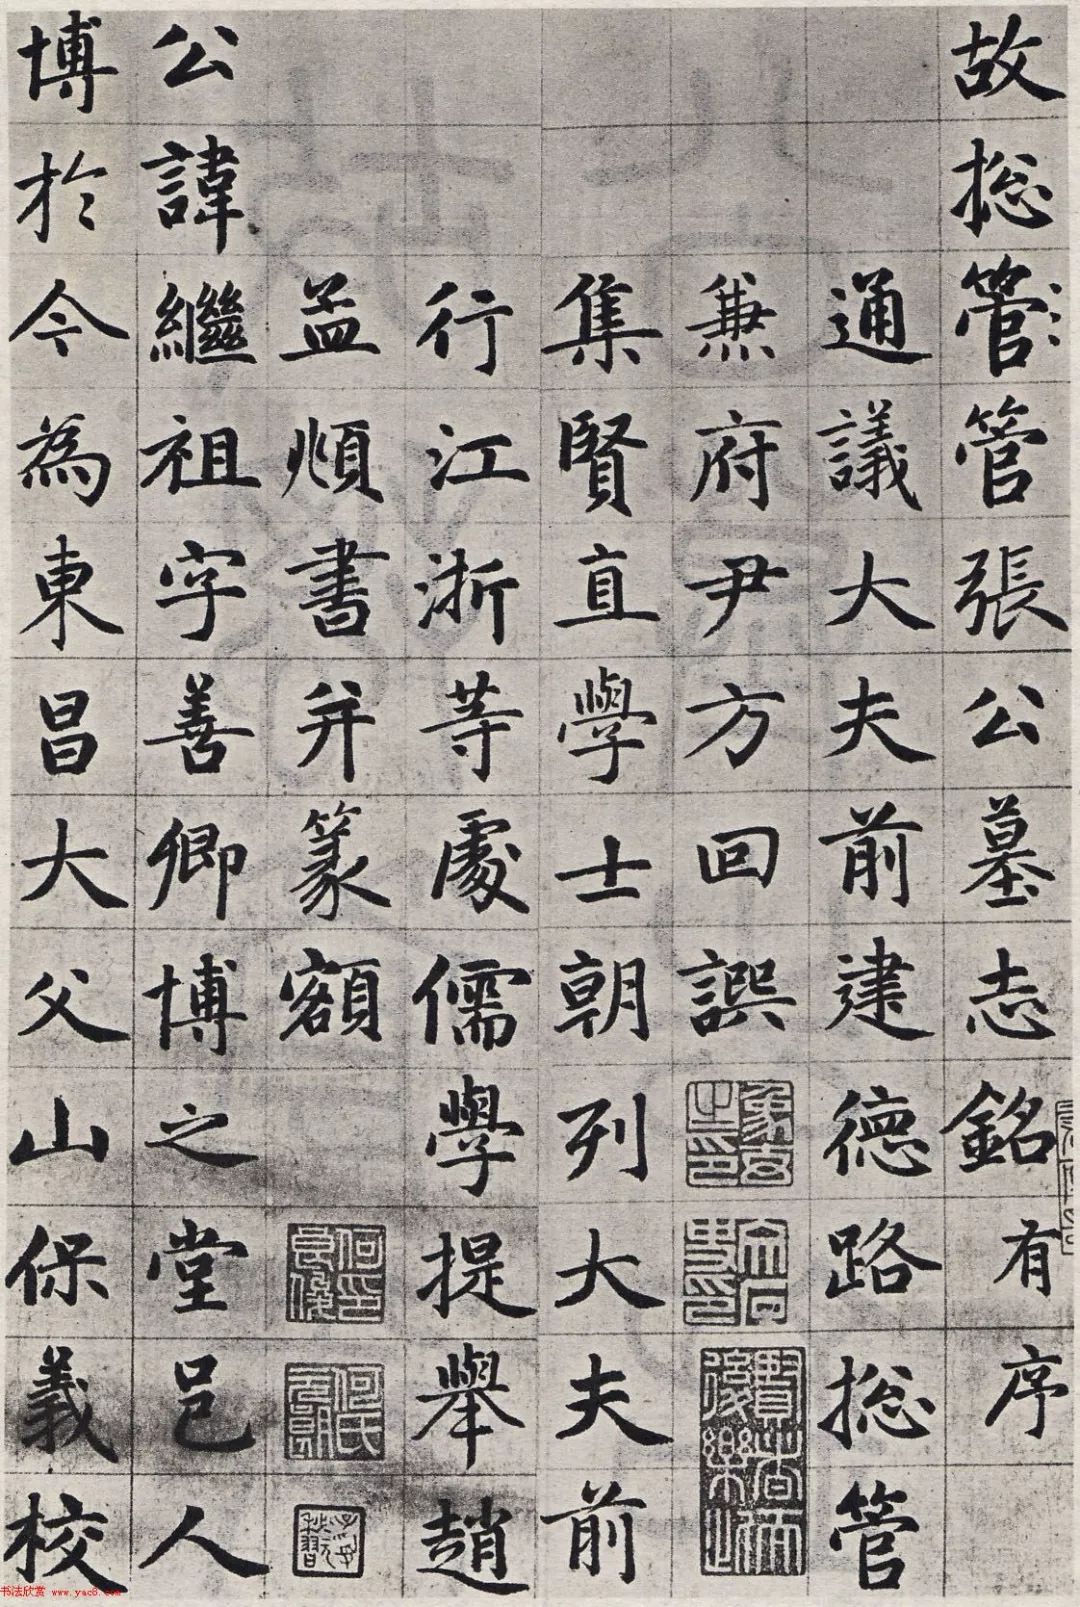 故揔管管張公墓志銘有序
通議大夫前建德路揔管
兼府尹方回譔
集賢直學士朝列大夫前
行江浙等處儒學提舉趙
孟頫書并篆額
公諱繼祖字善卿博之堂邑人
博於今為東昌大父山保義校
何氏
书法欣赏 www.yac8.com